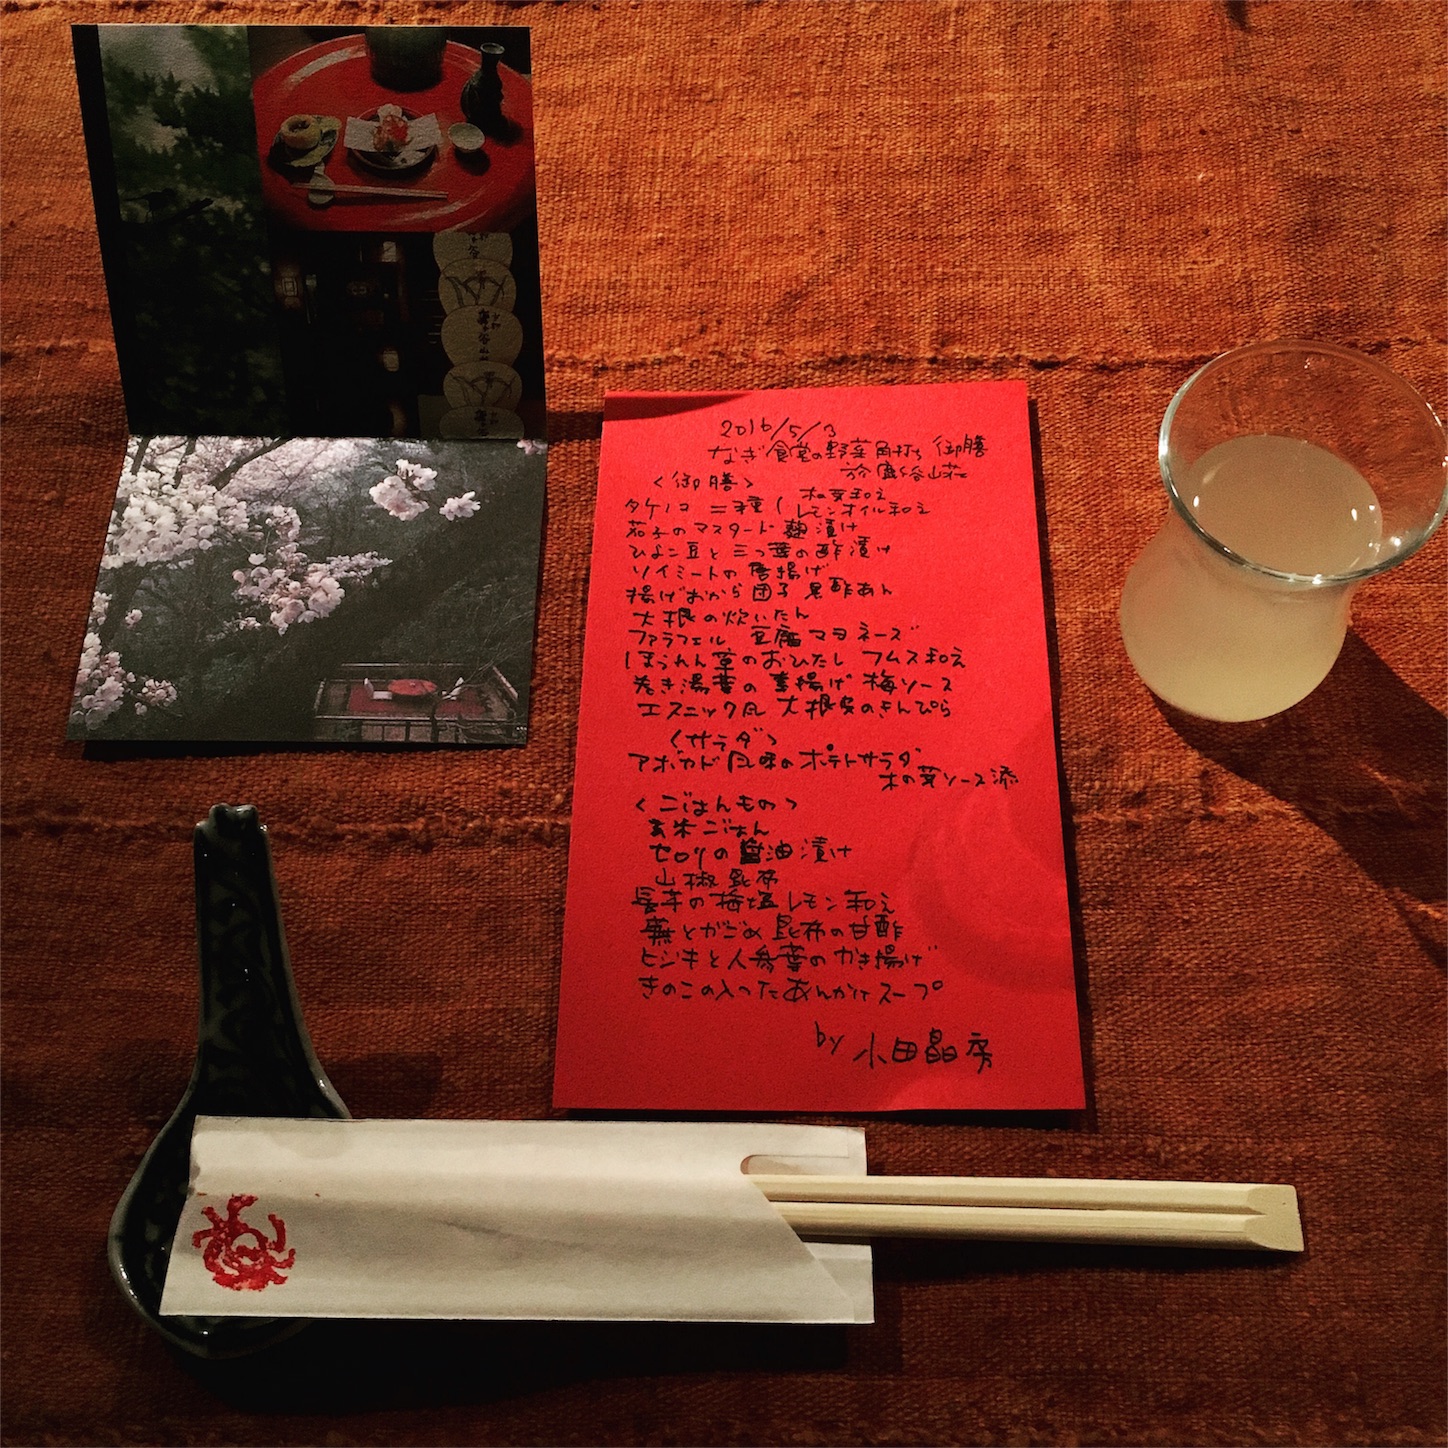 2016/5/3
なぎ食堂の野菜角打ち 御膳
於 庭谷山荘
〈御膳〉
木の芽和え
タケノコ 二種 ( レモンオイル和え
茄子のマスタード麹漬け
ひよこ豆と三つ葉の酢漬け
ソイミートの唐揚げ
揚げおから団子 黒酢あん
大根の炊いたん
ファラフェル 豆腐マヨネーズ
ほうれん草のおひたし フムス和え
巻き湯葉の素揚げ 梅ソース
エスニック風 大根皮のきんぴら
〈サラダ〉
アボカド風味のポテトサラダ
木の芽ソース添
〈ごはんもの〉
玄米ごはん
セロリの醤油漬け
山椒昆布
長芋の梅塩レモン和え
蕪とがごめ昆布の甘酢
ヒジキと人参葉のかき揚げ
きのこの入ったあんかけスープ
by 小田晶房